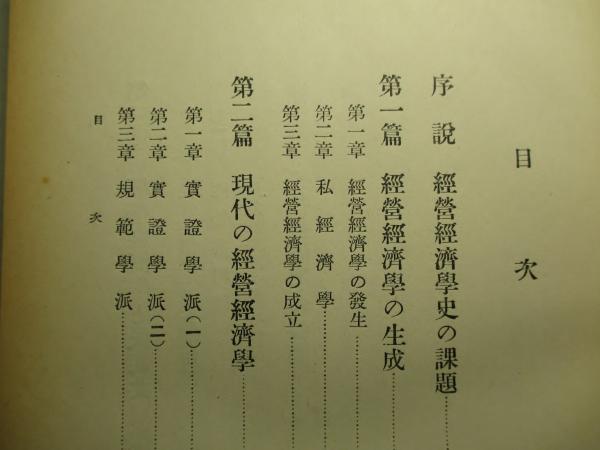 目次
序說 經營經濟學史の課題
第一篇 經營經濟學の生成
第一章 經營經濟學の發生
第二章 私經濟學
第三章 經營經濟學の成立
第二篇 現代の經營經濟學
第一章 實證學派(一)
第二章 實證學派(二)
第三章 規範學派
目次